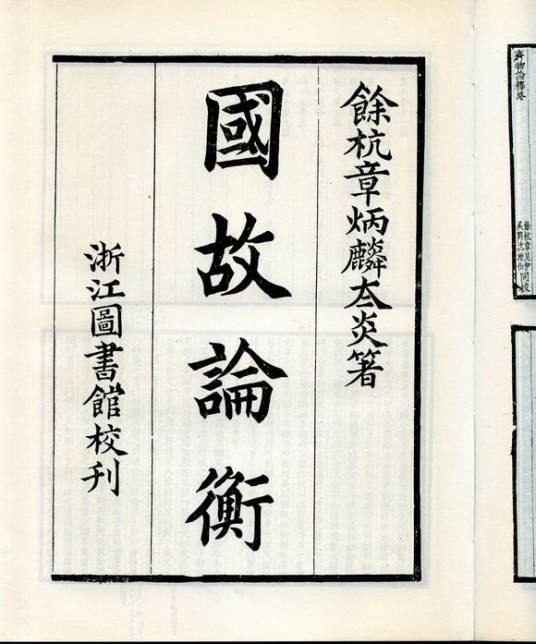 餘杭章炳麟太炎箸
國故論衡
浙江圖書館校刊
齊物論釋